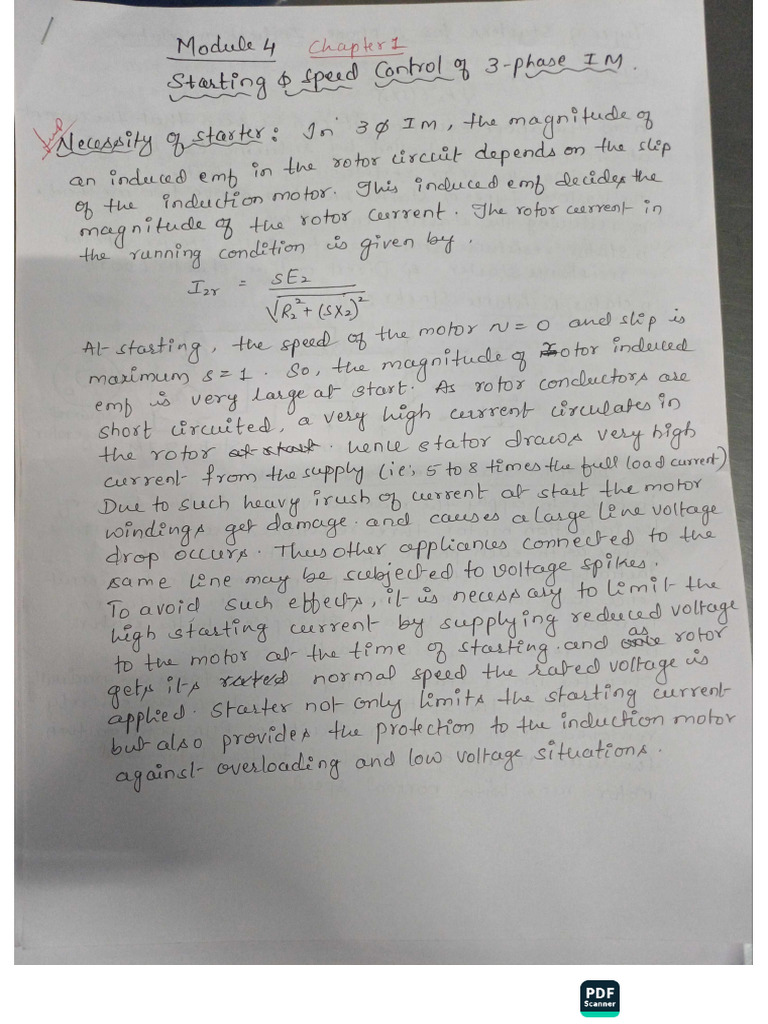 Module 4 Chapter 1
Starting & Speed Control of 3-phase IM.
Necessity of starter: In 3ϕ IM, the magnitude of
an induced emf in the rotor circuit depends on the slip
of the induction motor. This induced emf decides the
magnitude of the rotor current. The rotor current in
the running condition is given by.
I2r = SE2 / √R2² + (SX2)²
At starting, the speed of the motor N = 0 and slip is
maximum s = 1. So, the magnitude of rotor induced
emf is very large at start. As rotor conductors are
short circuited, a very high current circulates in
the rotor at start. hence stator draws very high
current from the supply (ie; 5 to 8 times the full load current)
Due to such heavy irush of current at start the motor
windings get damage and causes a large line voltage
drop occurs. Thus other appliances connected to the
same line may be subjected to voltage spikes.
To avoid such effects, it is necessary to limit the
high starting current by supplying reduced voltage
to the motor at the time of starting and as rotor
gets its rated normal speed the rated voltage is
applied. Starter not only limits the starting current
but also provides the protection to the induction motor
against overloading and low voltage situations.
PDF
Scanner